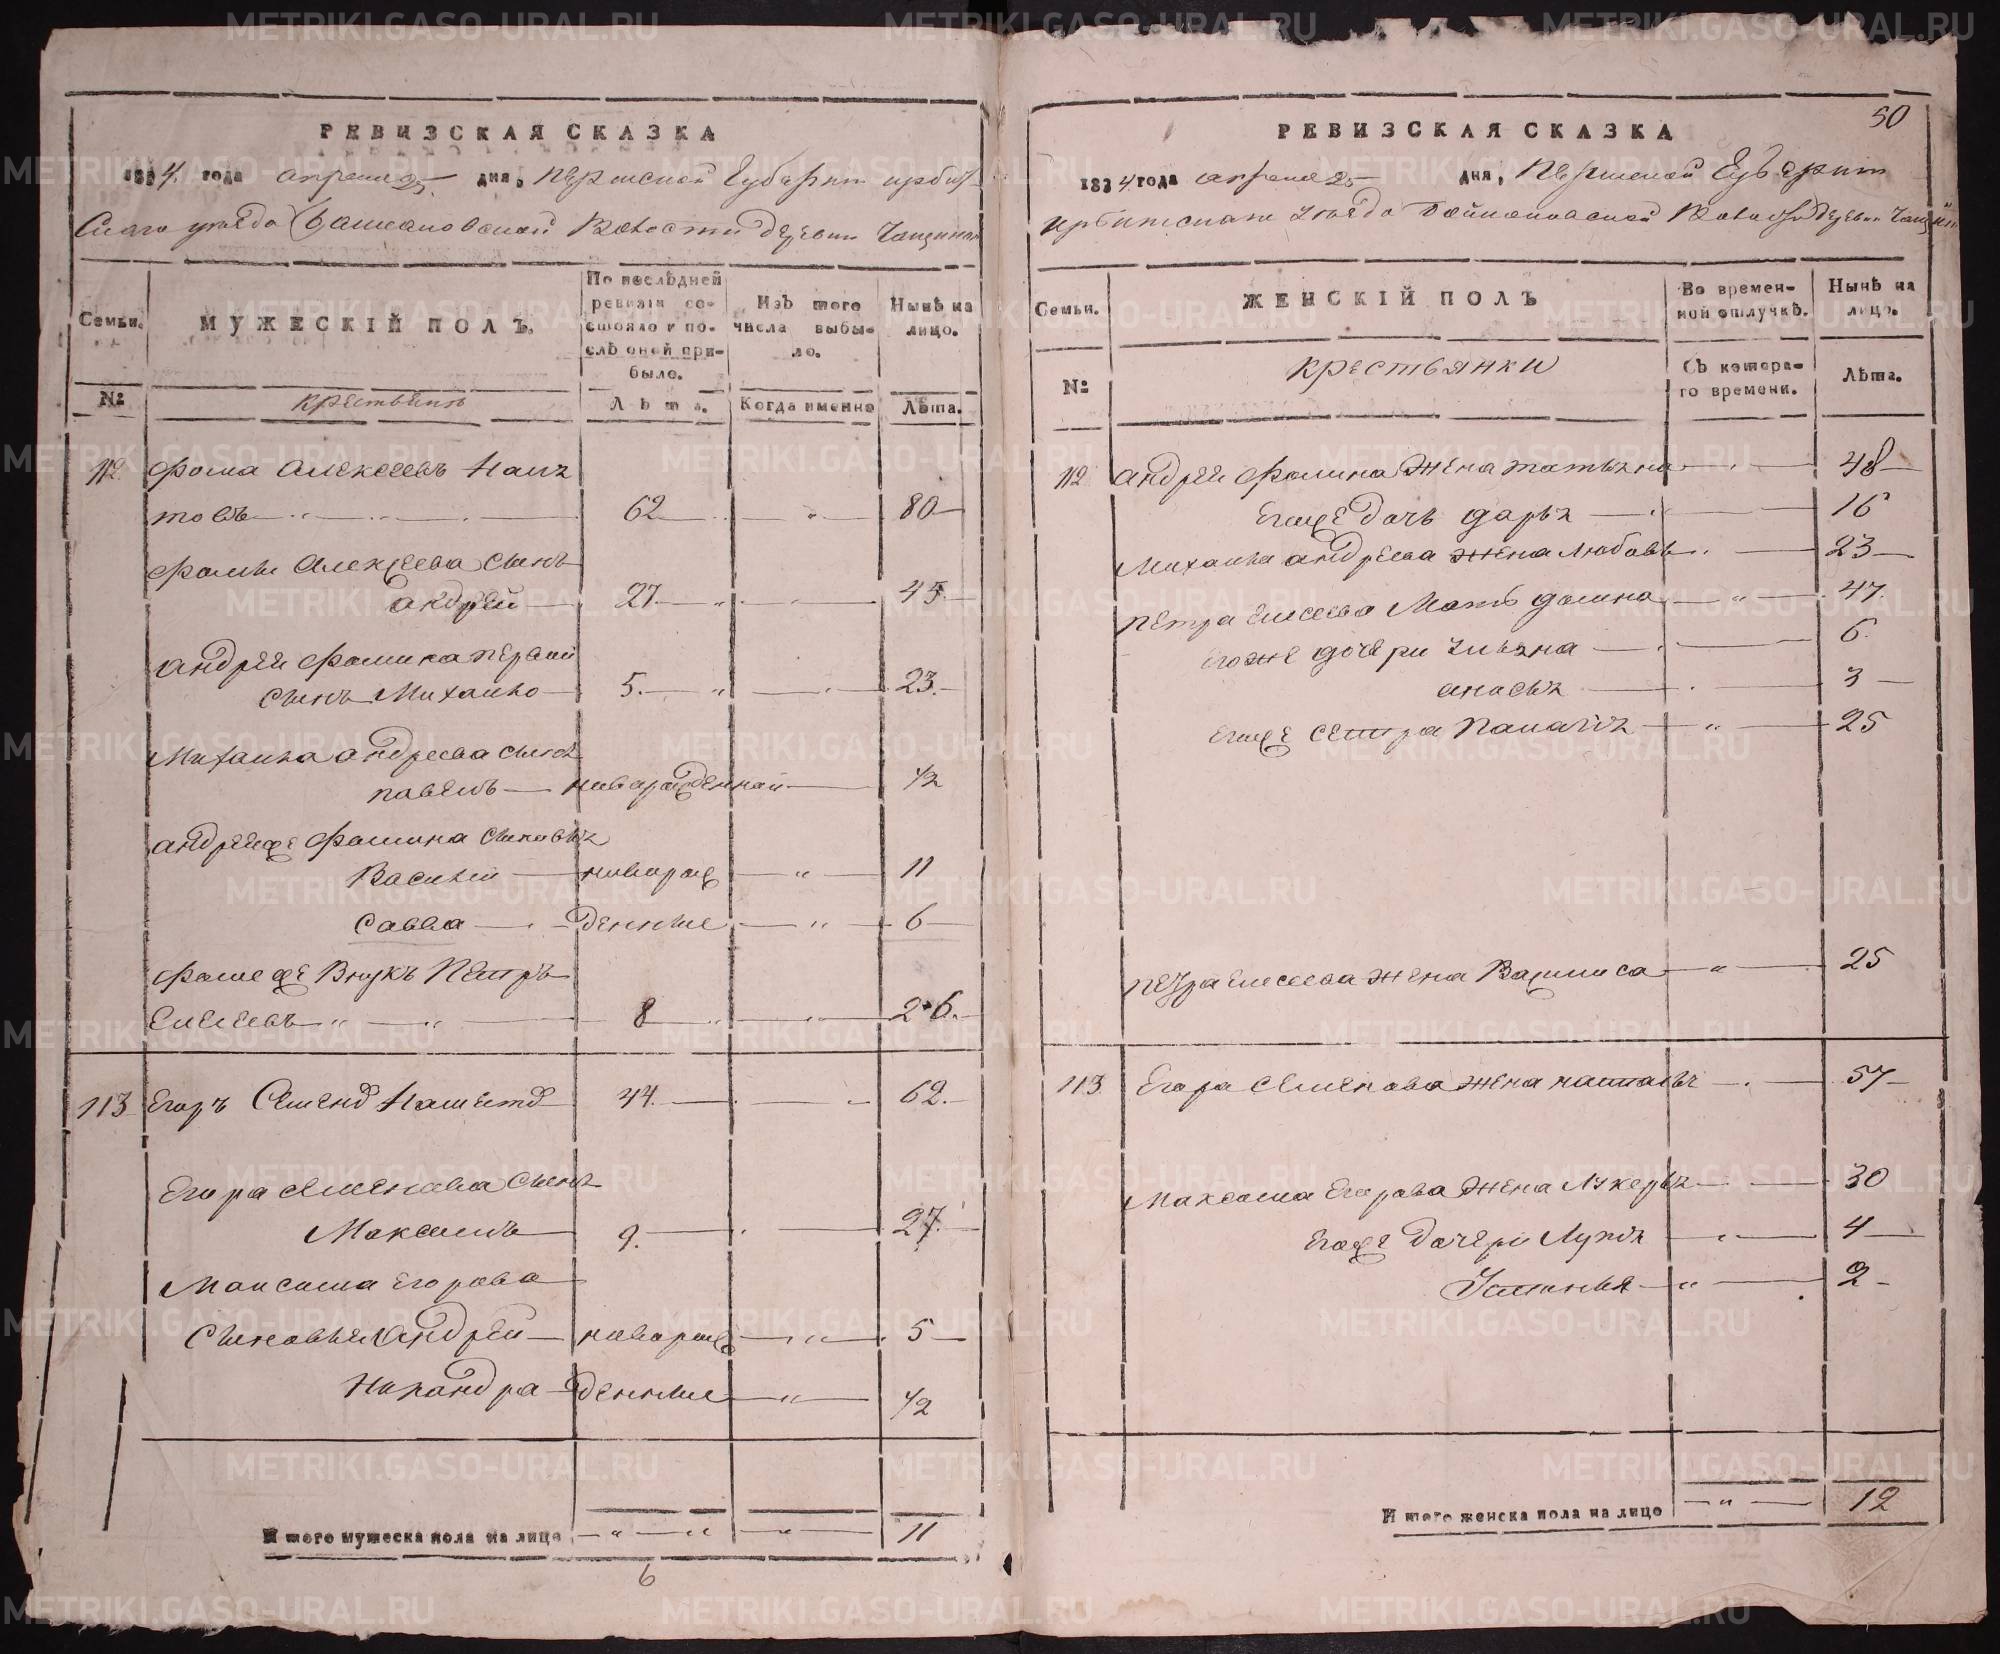 РЕВИЗСКАЯ СКАЗКА
1834 года апреля 25 дня, Пермской Губерни Ирбит-
скаго уезда Волости деревни
Семьи.
МУЖЕСКІЙ ПОЛЪ.
По послѣдней ревизіи состояло и послѣ оной прибыло.
Изъ того числа выбыло.
Нынѣ на лицо.
№
крестьянъ
Лѣта.
Когда именно
Лѣта.
112 Фома Алексеевъ
товъ 62 80
Фомы Алексеева сынъ
андрей 27 45
андрей Фомина первой
сынъ Михаило 5. 23.
Михаила андреева сынъ
павелъ новорожденной 1/2
андрейже Фомина сыновья
Василей новорож 11
Савва денные 6
Фоме же Внукъ Петръ
Елесеевъ 8 26.
113 Егоръ Семенов 44 62.
Егора семенова сынъ
Максимъ 9. 27.
Максима Егорова
сыновья Андрей новорож 5
Никандра денные 1/2
Итого мужеска пола на лицо 11
6
50
РЕВИЗСКАЯ СКАЗКА
1834 года апреля 25 дня, Пермской Губерни
Ирбитскаго уезда Волости деревни
Семьи.
ЖЕНСКІЙ ПОЛЪ
Во временной отлучкѣ.
Нынѣ на лицо.
№
крестьянки
Съ котораго времени.
Лѣта.
112 андрей Фомина жена татьяна 48
Егоже дочь дарья 16
Михаила андреева жена любовь 23
петра елесеева Мать домна 47.
егоже дочери ульяна 6.
3
егоже сестра 25
петра елесеева жена Васииса 25
113. Егора семенова жена наталья 57
Максима Егорова жена лукерья 30
Егоже дочери 4
Устинья 2
Итого женска пола на лицо 12
METRIKI.GASO-URAL.RU